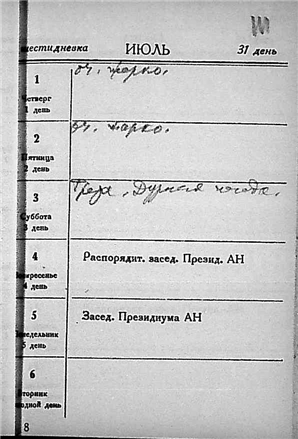 шестидневка ИЮЛЬ 31 день
1
Четверг
1 день
оч. жарко.
2
Пятница
2 день
оч. жарко.
3
Суббота
3 день
Гроза. Дурная погода.
4
Воскресенье
4 день
Распорядит. засед. Презид. АН
5
Понедельник
5 день
Засед. Президиума АН
6
Вторник
выходной день
8